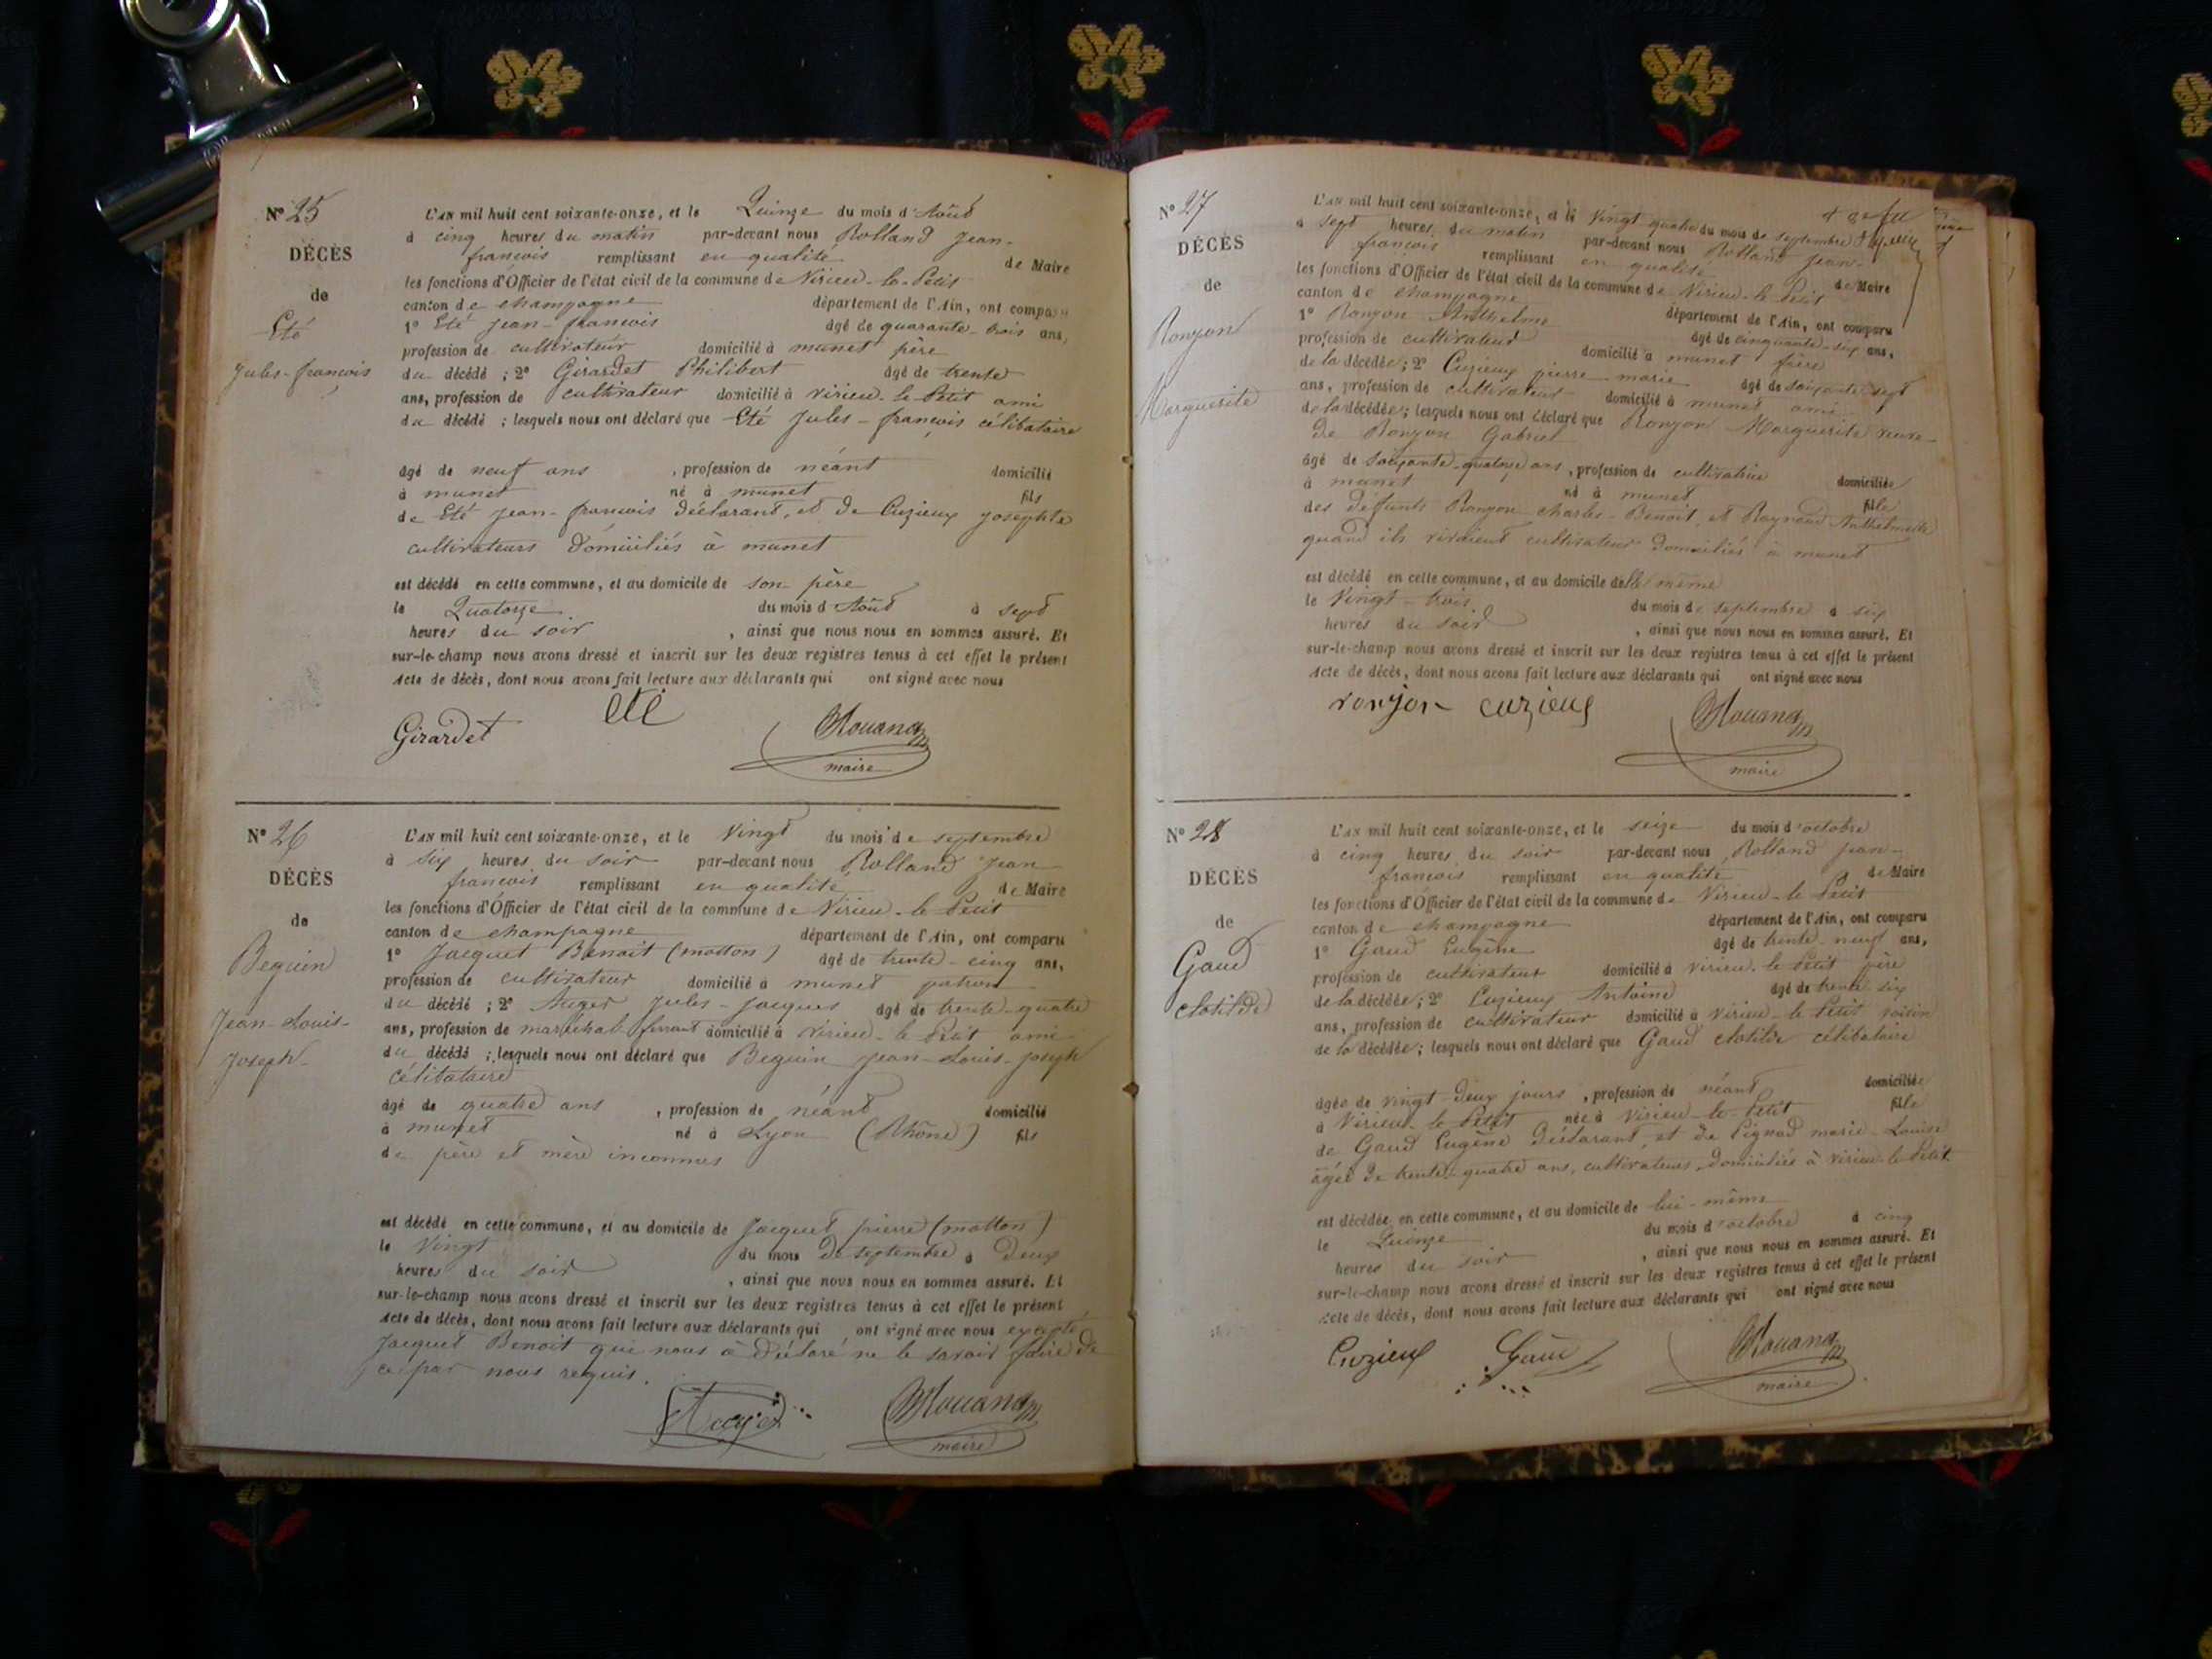 N° 25
DÉCÈS
de
Eté
Jules-françois
L'AN mil huit cent soixante-onze, et le Quinze du mois d'Août
à cinq heures du matin par-devant nous Rolland Jean-
françois remplissant en qualité de Maire
les fonctions d'Officier de l'état civil de la commune de Virieu-le-Petit
canton de champagne département de l'Ain, ont comparu
1° Eté Jean-françois âgé de quarante-trois ans,
profession de cultivateur domicilié à munet père
du décédé ; 2° Girardet Philibert âgé de trente
ans, profession de cultivateur domicilié à virieu-le-Petit ami
du décédé ; lesquels nous ont déclaré que Eté Jules-françois célibataire
âgé de neuf ans , profession de néant domicilié
à munet né à munet fils
de Eté Jean-françois déclarant, et de Cuzieux Josephte
cultivateurs domiciliés à munet
est décédé en cette commune, et au domicile de son père
le Quatorze du mois d'Août à sept
heures du soir , ainsi que nous nous en sommes assuré. Et
sur-le-champ nous avons dressé et inscrit sur les deux registres tenus à cet effet le présent
Acte de décès, dont nous avons fait lecture aux déclarants qui ont signé avec nous
Girardet eté
maire
N° 26
DÉCÈS
de
Beguin
Jean-Louis-
Joseph
L'AN mil huit cent soixante-onze, et le Vingt du mois de septembre
à six heures du soir par-devant nous Rolland Jean
françois remplissant en qualité de Maire
les fonctions d'Officier de l'état civil de la commune de Virieu-le-Petit
canton de champagne département de l'Ain, ont comparu
1° Jacquet Benoit (matton) âgé de trente-cinq ans,
profession de cultivateur domicilié à munet patron
du décédé ; 2° Auger Jules-Jacques âgé de trente-quatre
ans, profession de maréchal-ferrant domicilié à virieu-le-Petit ami
du décédé ; lesquels nous ont déclaré que Beguin Jean-Louis-Joseph
célibataire
âgé de quatre ans , profession de néant domicilié
à munet né à Lyon (Rhône) fils
de père et mère inconnus
est décédé en cette commune, et au domicile de Jacquet pierre (matton)
le Vingt du mois de septembre à deux
heures du soir , ainsi que nous nous en sommes assuré. Et
sur-le-champ nous avons dressé et inscrit sur les deux registres tenus à cet effet le présent
Acte de décès, dont nous avons fait lecture aux déclarants qui ont signé avec nous excepté
Jacquet Benoit qui nous à déclaré ne le savoir faire de
ce par nous requis.
Auger
maire
N° 27
DÉCÈS
de
Ronzon
Marguerite
L'AN mil huit cent soixante-onze, et le vingt quatre du mois de septembre
à sept heures du matin par-devant nous Rolland Jean-
françois remplissant en qualité de Maire
les fonctions d'Officier de l'état civil de la commune de Virieu-le-Petit
canton de champagne département de l'Ain, ont comparu
1° Ronzon Anthelme âgé de cinquante-six ans,
profession de cultivateur domicilié à munet frère
de la décédée ; 2° Cuzieux pierre-marie âgé de soixante sept
ans, profession de cultivateur domicilié à munet ami
de la décédée ; lesquels nous ont déclaré que Ronzon Marguerite veuve
de Ronzon Gabriel
âgé de soixante-quatorze ans, profession de cultivatrice domiciliée
à munet né à munet fille
des défunts Ronzon charles-Benoit, et Raynaud
quand ils vivaient cultivateurs domiciliés à munet
est décédé en cette commune, et au domicile d'elle même
le Vingt-trois du mois de septembre à six
heures du soir , ainsi que nous nous en sommes assuré. Et
sur-le-champ nous avons dressé et inscrit sur les deux registres tenus à cet effet le présent
Acte de décès, dont nous avons fait lecture aux déclarants qui ont signé avec nous
ronjon cuzieux
maire
N° 28
DÉCÈS
de
Gaud
clotilde
L'AN mil huit cent soixante-onze, et le seize du mois d'octobre
à cinq heures du soir par-devant nous Rolland Jean-
françois remplissant en qualité de Maire
les fonctions d'Officier de l'état civil de la commune de Virieu-le-Petit
canton de champagne département de l'Ain, ont comparu
1° Gaud Eugène âgé de trente-neuf ans,
profession de cultivateur domicilié à virieu-le-Petit père
de la décédée ; 2° Cuzieux Antoine âgé de trente-six
ans, profession de cultivateur domicilié à virieu-le-Petit voisin
de la décédée ; lesquels nous ont déclaré que Gaud clotilde célibataire
âgée de vingt-deux jours , profession de néant domiciliée
à Virieu-le-Petit née à Virieu-le-Petit fille
de Gaud Eugène déclarant, et de Pignod marie-Louise
âgée de trente-quatre ans, cultivateurs domiciliés à virieu-le-Petit
est décédée en cette commune, et au domicile de lui-même
le Quinze du mois d'octobre à cinq
heures du soir , ainsi que nous nous en sommes assuré. Et
sur-le-champ nous avons dressé et inscrit sur les deux registres tenus à cet effet le présent
Acte de décès, dont nous avons fait lecture aux déclarants qui ont signé avec nous
Cuzieux Gaud
maire